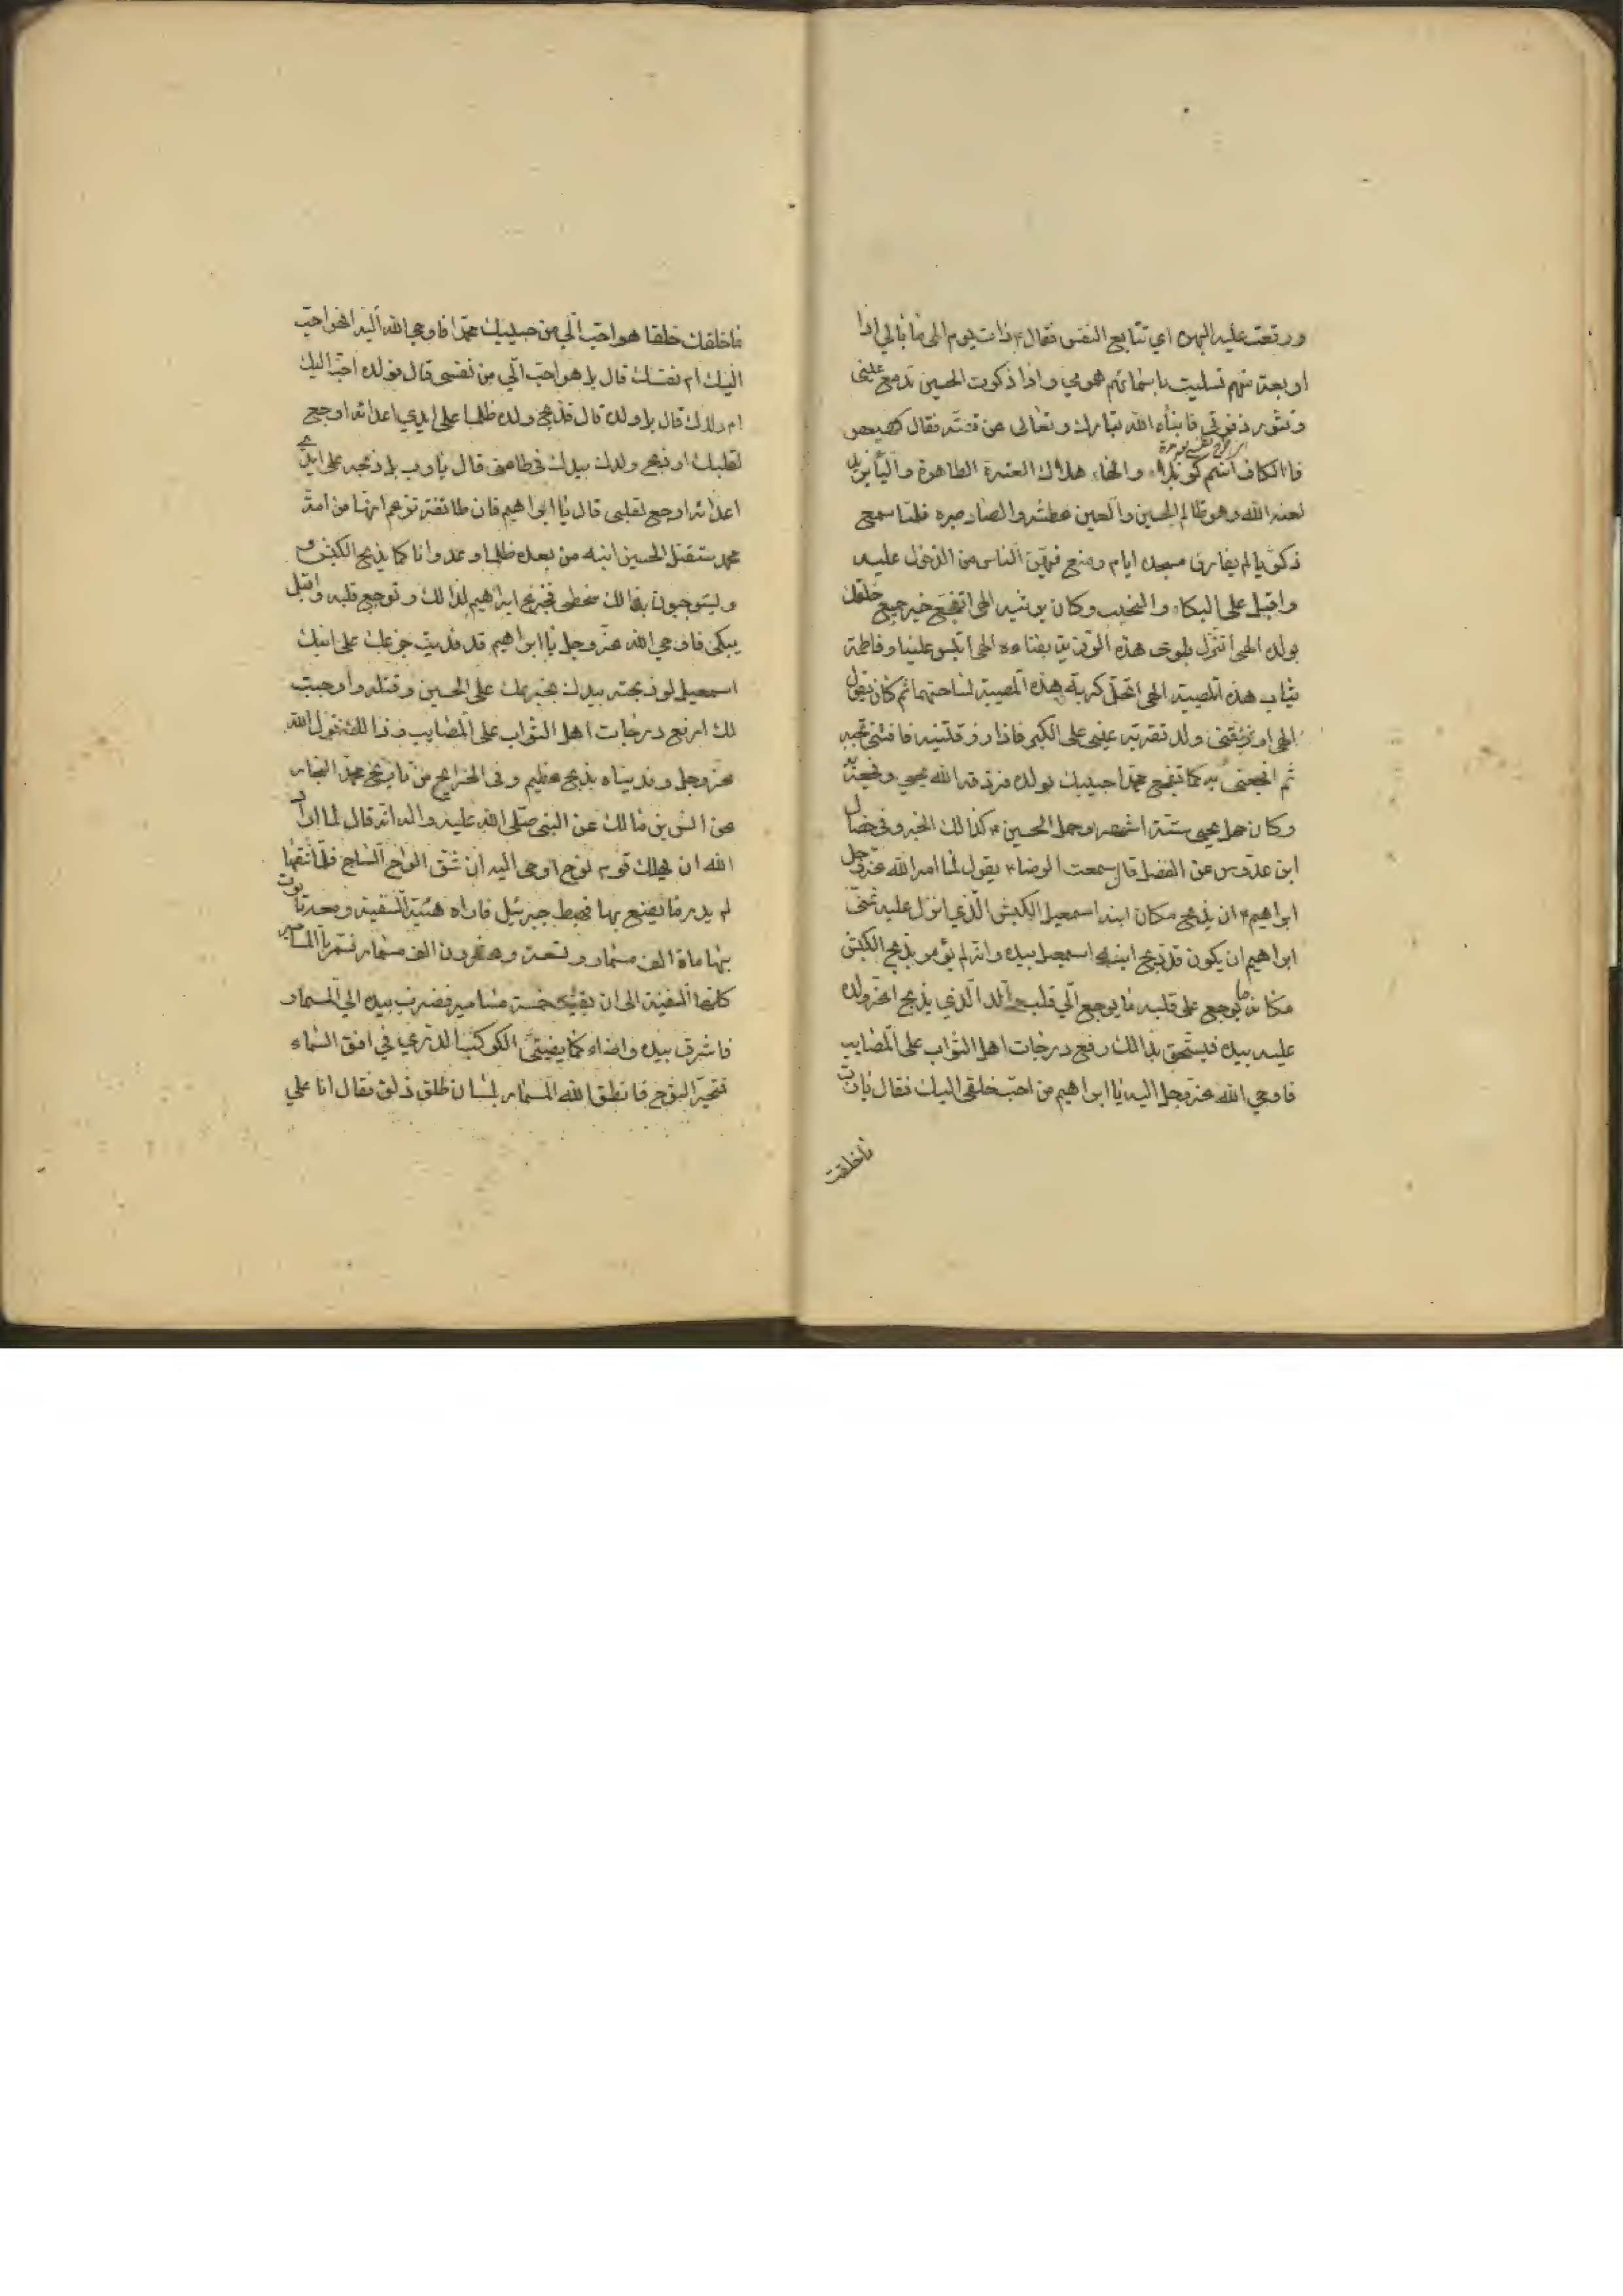 ووقعت عليه البهرة اي تتابع النفس فقال ۴ ذات يوم الهي ما بالي اذا
اربعة منهم تسليت باسمائهم همومي واذا ذكرت الحسين تدمع عيني
وتثور زفرتي فانبأه الله تبارك وتعالى عن قصته فقال كهيعص
فالكاف اسم كربلاء والهاء هلاك العترة الطاهرة والياء يزيد
لعنه الله وهو ظالم الحسين والعين عطشه والصاد صبره فلما سمع
زكريا لم يفارق مسجده ايام ومنع فيهن الناس من الدخول عليه
واقبل على البكاء والنحيب وكان يرثيه الهي اتفجع خير جميع خلقك
بولده الهي اتنزل بلوى هذه الرزية بفناءه الهي اتلبس عليا وفاطمة
ثياب هذه المصيبة الهي اتحل كربة هذه المصيبة لساحتهما ثم كان يقول
الهي ارزقني ولد تقر به عيني على الكبر فاذا رزقتنيه فافتني بحبه
ثم افجعني به كما تفجع محمدا حبيبك بولده فرزقه الله يحيى وفجعه به
وكان حمل يحيى ستة اشهر وحمل الحسين ۴ كذالك الخبر وفي خصال
ابن عدوس عن الفضل قال سمعت الرضا ۴ يقول لما امر الله عز وجل
ابراهيم ۴ ان يذبح مكان ابنه اسمعيل الكبش الذي انزل عليه تمنى
ابراهيم ان يكون قد ذبح ابنه اسمعيل بيده وانه لم يؤمر بذبح الكبش
مكانه ليرجع على قلبه ما يرجع الى قلب والد الذي يذبح اعز ولده
عليه بيده فيستحق بذالك رفع درجات اهل الثواب على المصايب
فاوحي الله عز وجل اليه يا ابراهيم من احب خلقي اليك فقال يا رب
ما خلقت
ما خلقت خلقا هو احب الي من حبيبك محمد فاوحى الله اليه افهو احب
اليك ام نفسك قال بل هو احب الي من نفسي قال فولده احب اليك
ام ولدك قال بل ولده قال فذبح ولده ظلما على ايدي اعدائه اوجع
لقلبك او ذبح ولدك بيدك في طاعتي قال يا رب بل ذبحه على ايدي
اعدائه اوجع لقلبي قال يا ابراهيم فان طائفة تزعم انها من امة
محمد ستقتل الحسين ابنه من بعده ظلما وعدوانا كما يذبح الكبش
وليستوجبون بذالك سخطي فجزع ابراهيم لذالك وتوجع قلبه واقبل
يبكي فاوحي الله عز وجل يا ابراهيم قد فديت جزعك على ابنك
اسمعيل لو ذبحته بيدك بجزعك على الحسين وقتله واوجبت
لك ارفع درجات اهل الثواب على المصايب وذالك قول الله
عز وجل وفديناه بذبح عظيم وفى الخرايج من تاريخ محمد النجار
عن انس بن مالك عن النبي صلى الله عليه واله انه قال لما اراد
الله ان يهلك قوم نوح اوحى اليه ان شق الواح الساج فلما شقها
لم يدر ما يصنع بها فهبط جبرئيل فاراه هيئة السفينة ومعه تابوت
بها ماة الف مسمار وتسعة وعشرون الف مسمار فسمر بالمسامير
كلها السفينة الى ان بقيت خمسة مسامير فضرب بيده الى المسمار
فاشرق بيده واضاء كما يضيئ الكوكب الدري في افق السماء
فتحير النوح فانطق الله المسمار بلسان طلق ذلق فقال انا على